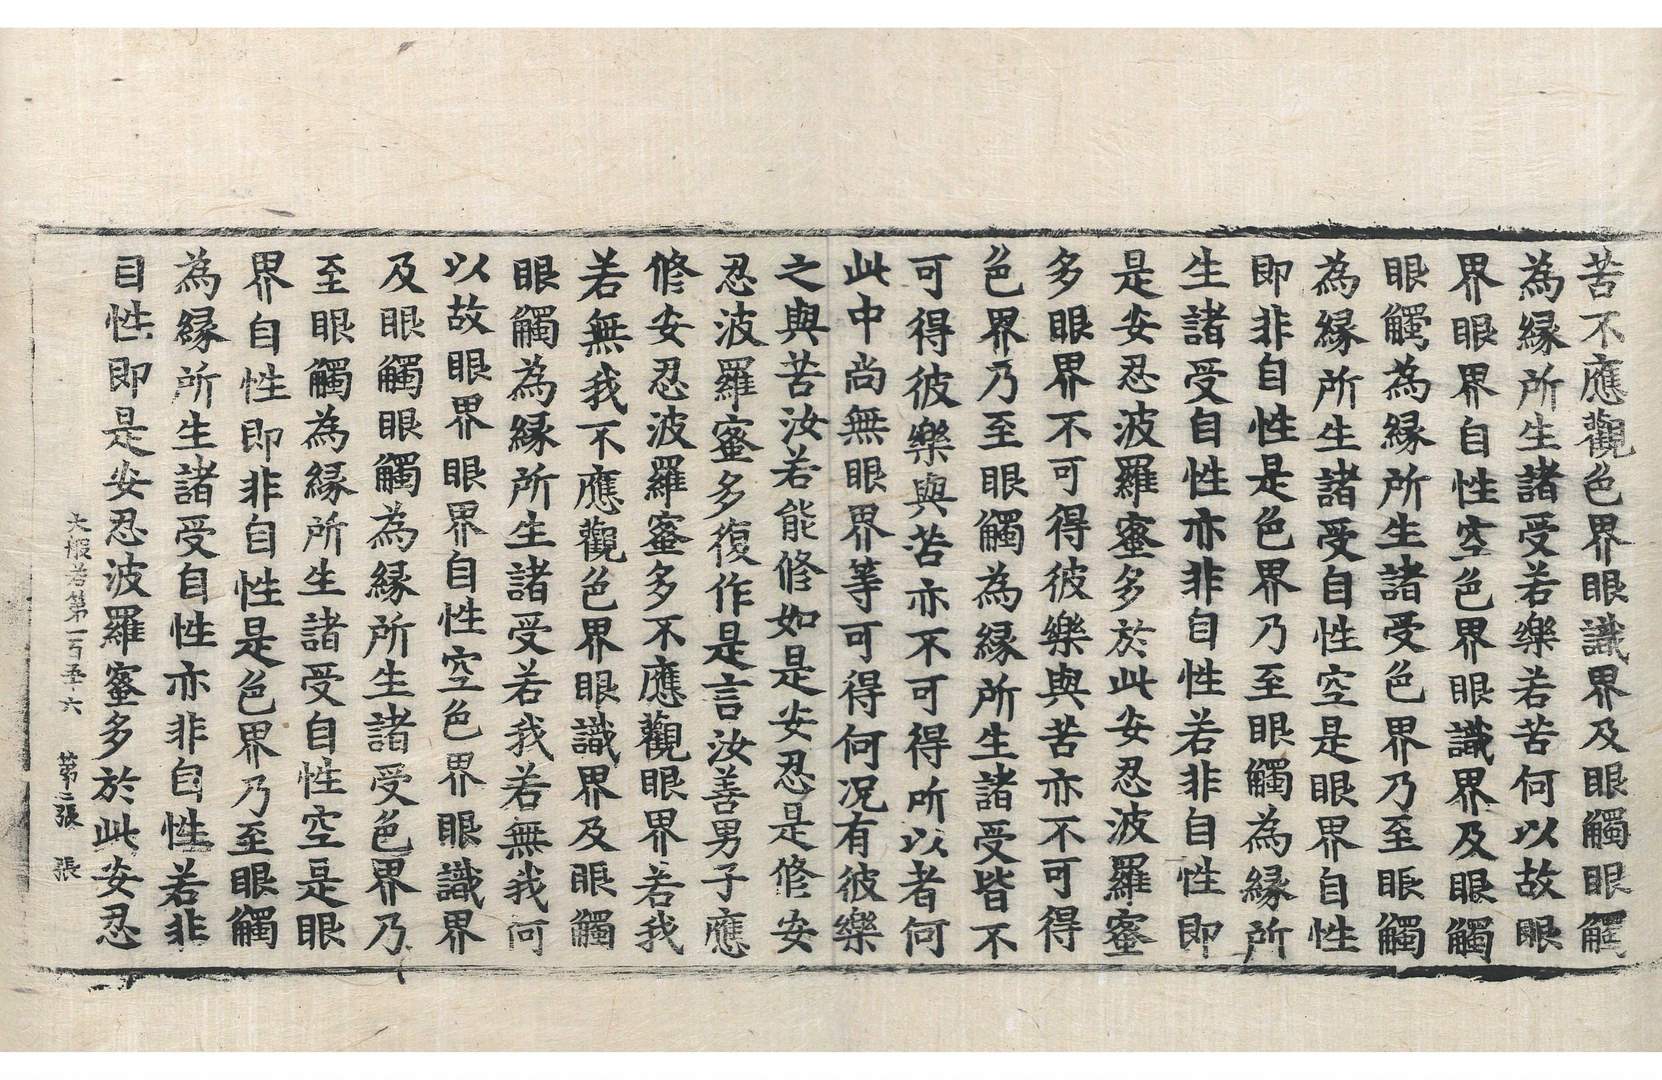 苦不應觀色界眼識界及眼觸眼觸
為縁所生諸受若樂若苦何以故眼
界眼界自性空色界眼識界及眼觸
眼觸為縁所生諸受色界乃至眼觸
為縁所生諸受自性空是眼界自性
即非自性是色界乃至眼觸為縁所
生諸受自性亦非自性若非自性即
是安忍波羅蜜多於此安忍波羅蜜
多眼界不可得彼樂與苦亦不可得
色界乃至眼觸為縁所生諸受皆不
可得彼樂與苦亦不可得所以者何
此中尚無眼界等可得何况有彼樂
之與苦汝若能修如是安忍是修安
忍波羅蜜多復作是言汝善男子應
修安忍波羅蜜多不應觀眼界若我
若無我不應觀色界眼識界及眼觸
眼觸為縁所生諸受若我若無我何
以故眼界眼界自性空色界眼識界
及眼觸眼觸為縁所生諸受色界乃
至眼觸為縁所生諸受自性空是眼
界自性即非自性是色界乃至眼觸
為縁所生諸受自性亦非自性若非
自性即是安忍波羅蜜多於此安忍
大般若第一百五十六 第二張 張